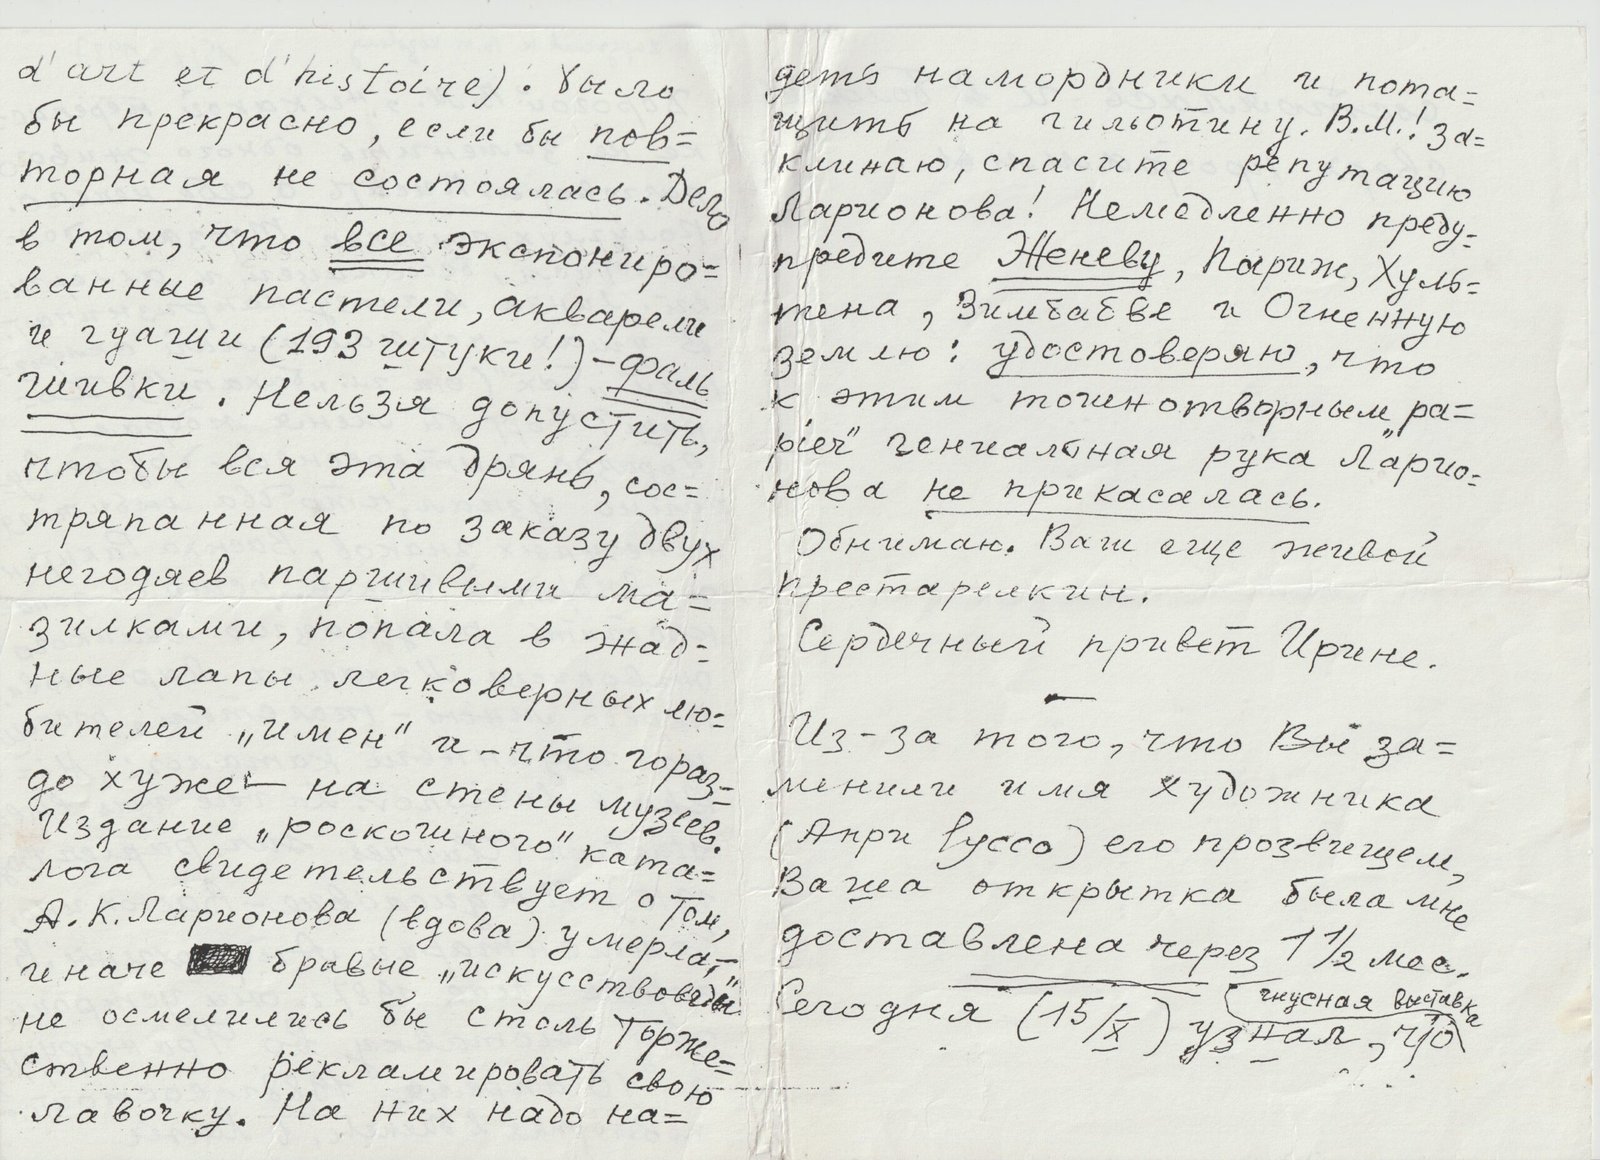 d'art et d'histoire). Было
бы прекрасно, если бы пов=
торная не состоялась. Дело
в том, что все экспониро=
ванные пастели, акварели
и гуаши (193 штуки!) – фаль
шивки. Нельзя допустить,
чтобы вся эта дрянь, сос=
тряпанная по заказу двух
негодяев паршивыми ма=
зилками, попала в жад=
ные лапы легковерных лю=
бителей „имен" и – что гораз=
до хуже – на стены музеев.
Издание „роскошного" ката=
лога свидетельствует о том,
А. К. Ларионова (вдова) умерла, –
иначе бравые „искусствоведы"
не осмелились бы столь торже=
ственно рекламировать свою
лавочку. На них надо на=
деть намордники и пота=
щить на гильотину. В.М.! за=
клинаю, спасите репутацию
Ларионова! Немедленно преду=
предите Женеву, Париж, Хуль=
тена, Зимбабве и Огненную
землю: удостоверяю, что
к этим тошнотворным „ра=
ріеч" гениальная рука Ларио=
нова не прикасалась.
Обнимаю. Ваш еще живой
престарелкин.
Сердечный привет Ирине.
Из-за того, что Вы за=
менили имя художника
(Анри Руссо) его прозвищем,
Ваша открытка была мне
доставлена через 1 1/2 мес.
Сегодня (15/X) узнал, что
(гнусная выставка